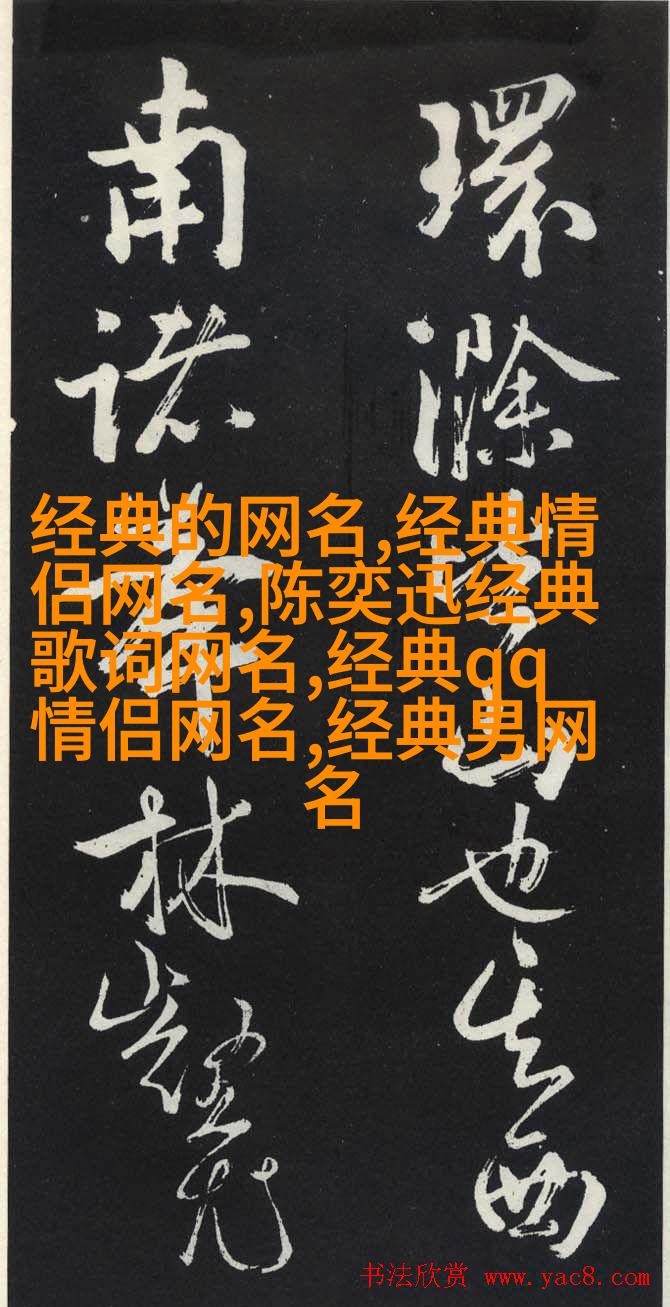 環滁皆山也其西
南諸峯林壑尤
经典的网名,经典情
侣网名,陈奕迅经典
歌词网名,经典qq
情侣网名,经典男网
名
书法欣赏 www.yac8.com